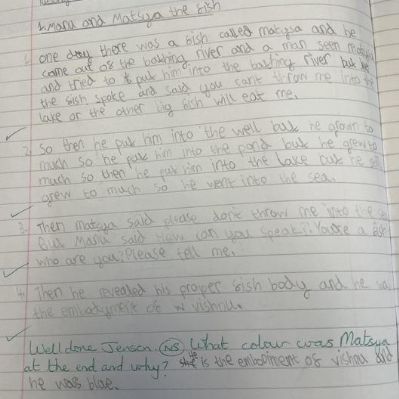 1. Manu and Matsya the fish
one day there was a fish called matsya and he
came out of the bathing river and a man seen
and tried to put him into the bathing river but he
the fish spoke and said you can't throw me into the
lake or the other big fish will eat me.
2. So then he put him into the well but he grown so
much so he put him into the pond but he grew to
much so then he put him into the lake but he
grew to much so he went into the sea.
3. Then matsya said please don't throw me into the
But Manu said How can you speak? You're a fish
who are you? Please tell me.
4. Then he revealed his proper fish body and he
the embodyment of vishnu.
Well done Jensen. NS What colour was Matsya
at the end and why? he is the embodiment of vishnu and
he was blue.